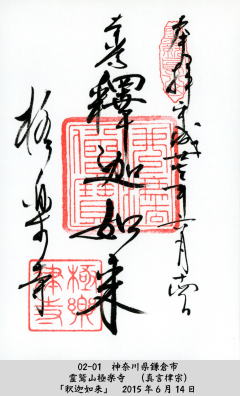 奉拝 平成廿七年六月十四日
霊鷲山
釋迦如来
極楽寺
佛法僧寶
極樂律寺
02-01 神奈川県鎌倉市
霊鷲山極楽寺 (真言律宗)
「釈迦如来」 2015年6月14日